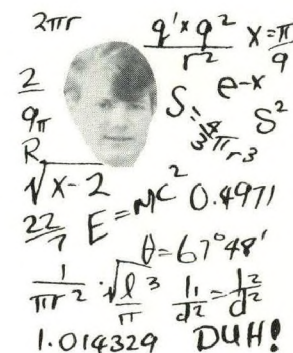 2πr
q'×q² / r²
X=π/9
2/9π
e-x
S=4/3πr³
S²
R
√x-2
E=MC²
0.4971
22/7
θ=67°48'
1/πr² · √l³/π
I₁/d²=I²/d²
1.014329 DUH!